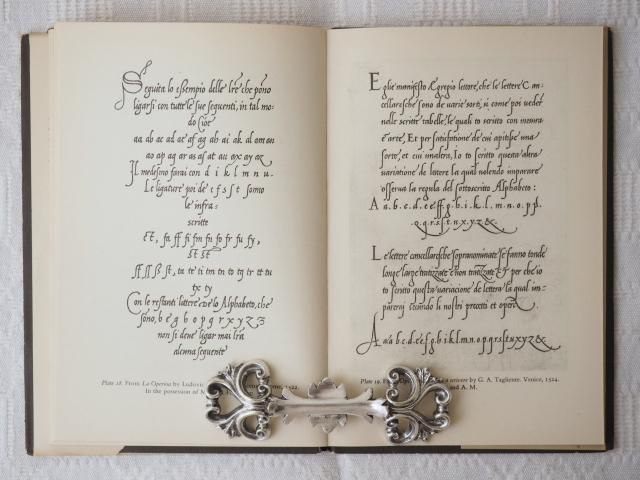 Seguita lo eſſempio delle lr̃e che põno
ligarſi con tutte le ſue ſeguenti, in tal mo-
do Cioe
aa ab ac ad ae af ag ah ai ak al am an
ao ap aq ar as aſ at au ax ay az
Il medeſmo farai con d i k l m n u.
Le ligature poi de c f s ſ t ſonno
le infra-
ſcritte
et, fa ff fi fm fu fo fr fu fy,
st ſt
ſſ ſſ ß ſt, ta te ti tm tn to tq tr tt tu
tx ty
Con le reſtanti littere de lo Alphabeto, che
ſono, b e g h o p q r x y z ʒ
non ſi deue ligar mai lr̃a
alcuna ſeguente
Plate 18. From La Operina by Ludovic
In the possession of
E glie manifeſto Ægregio lettore, che le lettere Can-
cellareſche ſono de uarie ſorti, ſi come poi ueder
nelle ſcritte tabelle, le quali to ſcritto con meſura
e arte, Et per ſatiſfatione de cui apetiſſe una
ſorte, et cui unaltra, Io to ſcritto queſta altra
uariatione de lettere la qual uolendo imparare
oſſerua la regula del ſottoſcritto Alphabeto:
A a.b.c.d.e.f.g.b.i.k.l.m.n.o.p.p.
.o.q.r.s.ſ.t.u.x.y.z.&.
Le lettere cancellareſche ſopranominate ſe fanno tonde
longe large tratizzate e non tratizzate Et per che io
to ſcritto queſta uariatione de lettera la qual im-
parerai ſecundo li noſtri precetti et opere
A a.b.c.d.e.e.f.g.h.i.k.l.m.n.o.p.q.r.s.ſ.t.u.x.y.z.&
Plate 19. by G. A. Tagliente. Venice, 1524.
and A. M.